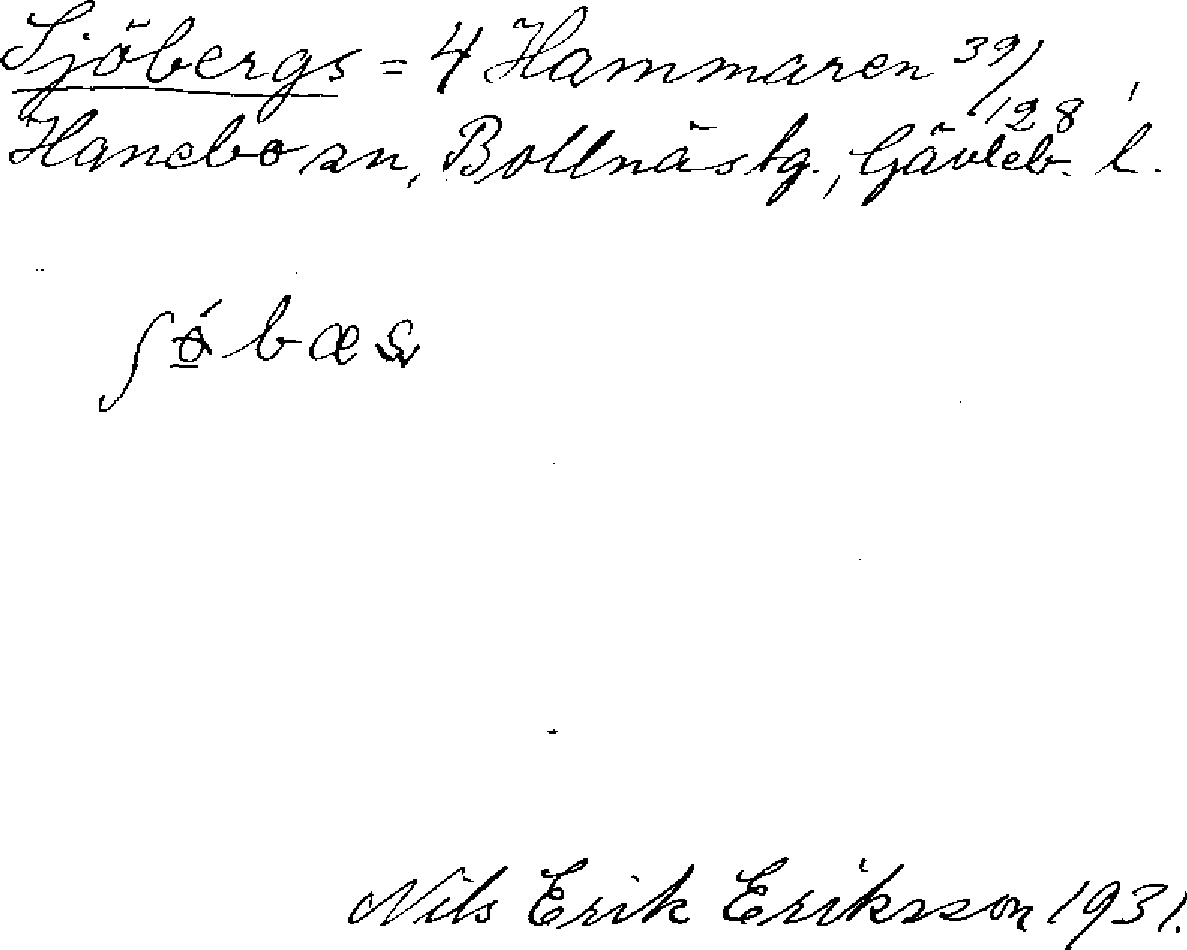 Sjöbergs = 4 Hammaren 39/128,
Hanebo sn, Bollnäs tg., Gävleb. l.
Nils Erik Eriksson 1931.